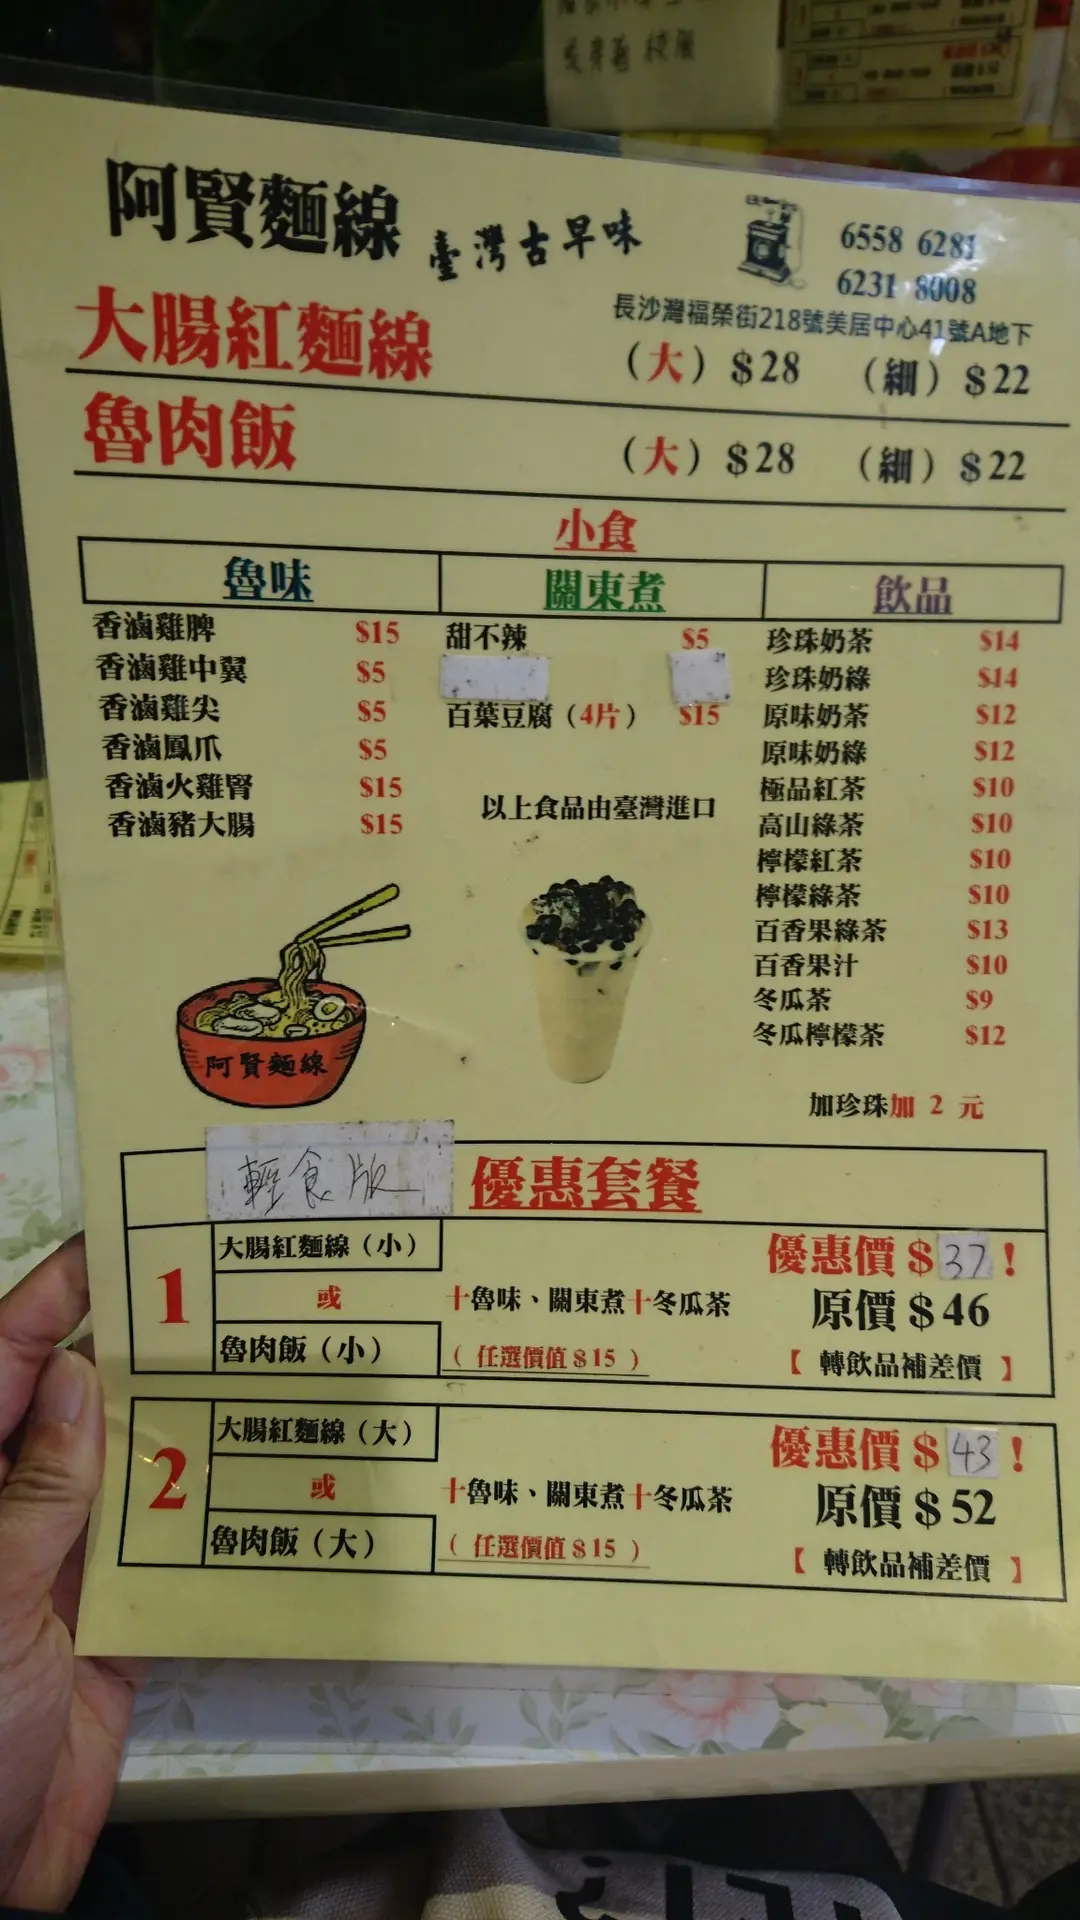 阿賢麵線 臺灣古早味
6558 6281
6231 8008
長沙灣福榮街218號美居中心41號A地下
大腸紅麵線 (大) $28 (細) $22
魯肉飯 (大) $28 (細) $22
小食
魯味 關東煮 飲品
香滷雞脾 $15 甜不辣 $5 珍珠奶茶 $14
香滷雞中翼 $5 珍珠奶綠 $14
香滷雞尖 $5 百葉豆腐（4片） $15 原味奶茶 $12
香滷鳳爪 $5 原味奶綠 $12
香滷火雞腎 $15 極品紅茶 $10
香滷豬大腸 $15 以上食品由臺灣進口 高山綠茶 $10
檸檬紅茶 $10
檸檬綠茶 $10
百香果綠茶 $13
百香果汁 $10
冬瓜茶 $9
冬瓜檸檬茶 $12
阿賢麵線
加珍珠加 2 元
輕食版 優惠套餐
1
大腸紅麵線（小）
或
魯肉飯（小）
十魯味、關東煮十冬瓜茶
（任選價值$15）
優惠價$37！
原價$46
【轉飲品補差價】
2
大腸紅麵線（大）
或
魯肉飯（大）
十魯味、關東煮十冬瓜茶
（任選價值$15）
優惠價$43！
原價$52
【轉飲品補差價】